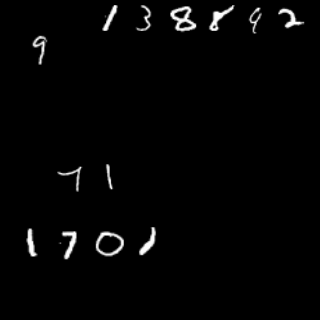 138892
9
71
1701